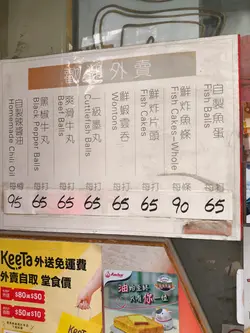 外賣
自製魚蛋
Fish Balls
每打
65
鮮炸魚條
Fish Cakes-Whole
每條
90
鮮炸片頭
Fish Cakes
每打
65
鮮蝦雲吞
Wontons
每打
65
墨丸
Cuttlefish Balls
每打
65
爽滑牛丸
Beef Balls
每打
65
黑椒牛丸
Black Pepper Balls
每打
65
自製辣醬油
Homemade Chili Oil
每樽
95
KeeTa 外送免運費
外賣自取 堂食價
$80減$50
$50減$10
KeeTa